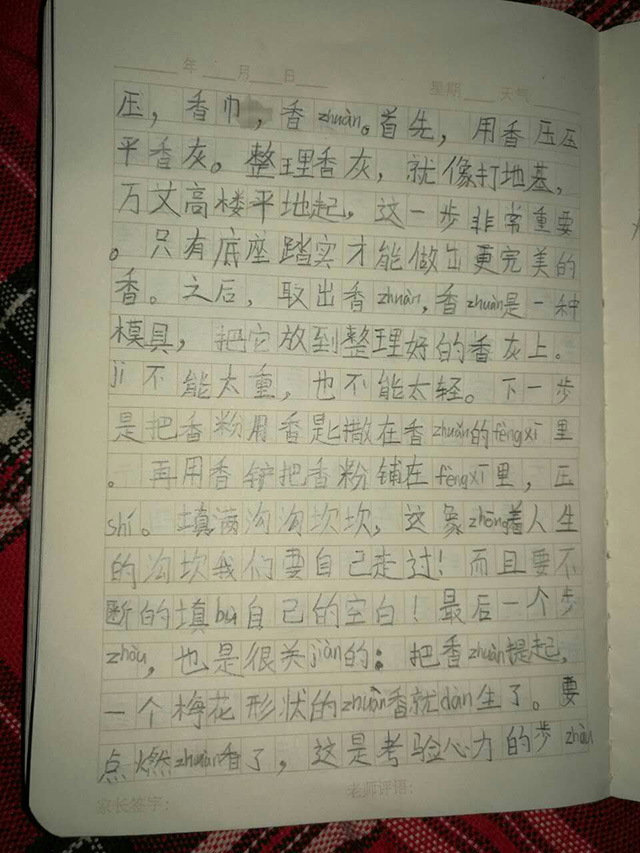 年 月 日 星期 天气
压，香巾，香zhuàn。首先，用香压压
平香灰。整理香灰，就像打地基，
万丈高楼平地起，这一步非常重要
。只有底座踏实才能做出更完美的
香。之后，取出香zhuàn，香zhuàn是一种
模具，把它放到整理好的香灰上。
jì不能太重，也不能太轻。下一步
是把香粉用香匙撒在香zhuàn的fèngxì里
。再用香铲把香粉铺在fèngxì里，压
shí。填满沟沟坎坎，这象zhēng着人生
的沟坎我们要自己走过！而且要不
断的填bǔ自己的空白！最后一个步
zhòu，也是很关jiàn的：把香zhuàn提起，
一个梅花形状的zhuàn香就dàn生了。要
点燃zhuàn香了，这是考验心力的步zhòu
家长签字： 老师评语：